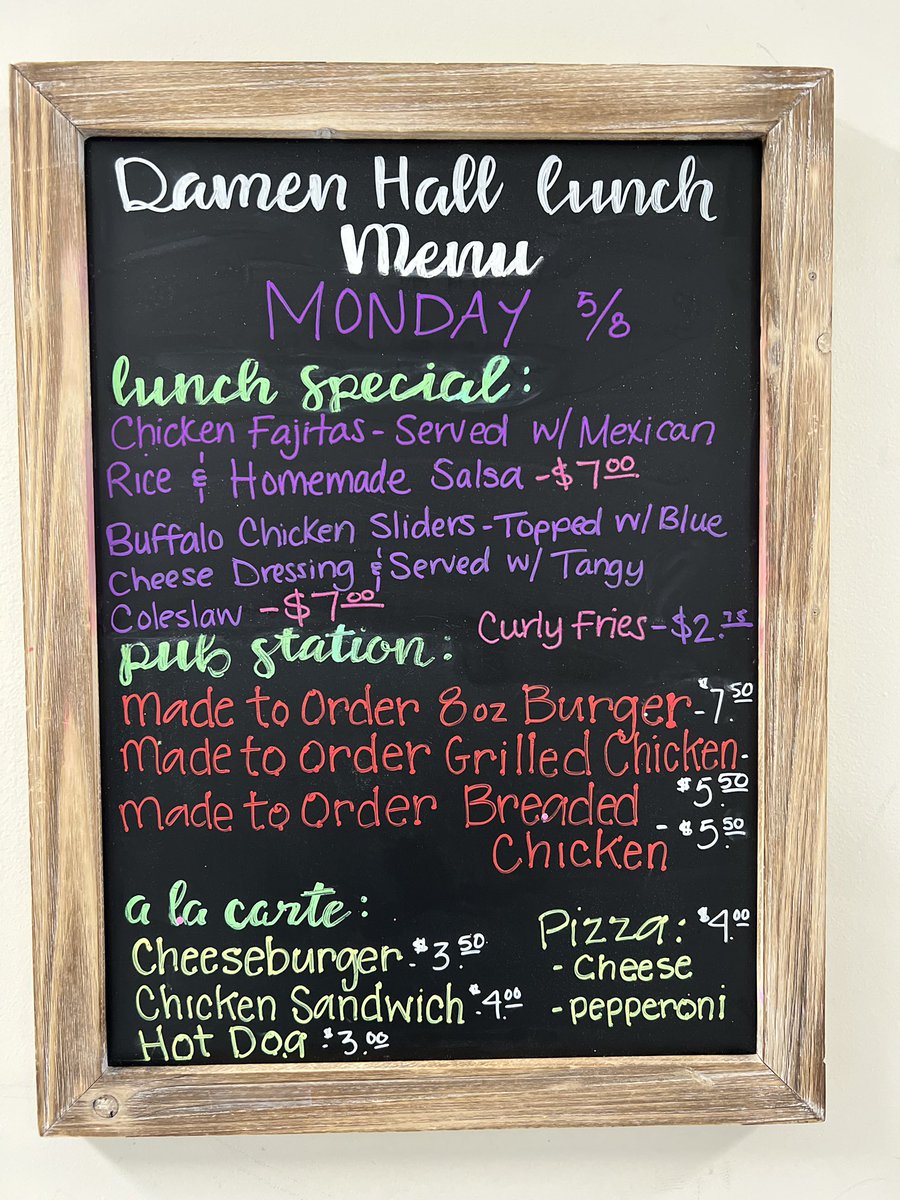 Damen Hall lunch
Menu
MONDAY 5/8
lunch special:
Chicken Fajitas - Served w/ Mexican
Rice & Homemade Salsa - $7.00
Buffalo Chicken Sliders - Topped w/ Blue
Cheese Dressing & Served w/ Tangy
Coleslaw - $7.00
Curly Fries - $2.75
pub station:
Made to Order 8oz Burger - $7.50
Made to Order Grilled Chicken -
$5.50
Made to Order Breaded
Chicken - $5.50
a la carte:
Cheeseburger - $3.50
Chicken Sandwich - $4.00
Hot Dog - $3.00
Pizza: $4.00
- Cheese
- pepperoni